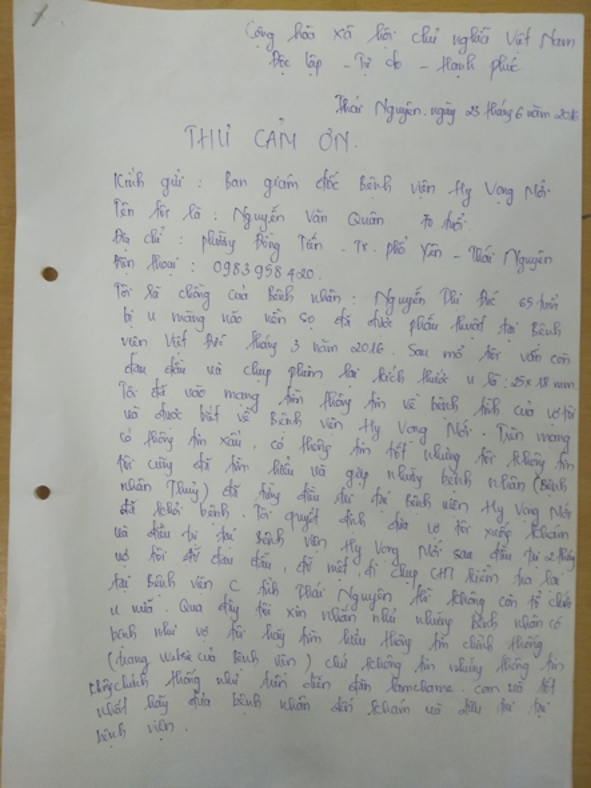 Cộng hòa xã hội chủ nghĩa Việt Nam
Độc lập - Tự do - Hạnh phúc
Thái Nguyên, ngày 23 tháng 6 năm 2016
THƯ CẢM ƠN.
Kính gửi : Ban giám đốc Bệnh viện Hy Vọng Mới.
Tên tôi là : Nguyễn Văn Quân 70 tuổi.
Địa chỉ : phường Đồng Tiến - Tx. phổ Yên - Thái Nguyên
Điện thoại : 0983958420.
Tôi là chồng của Bệnh nhân : Nguyễn Thị Đức 65 tuổi
bị u màng não nền sọ đã được phẫu thuật tại Bệnh
viện Việt Đức tháng 3 năm 2016. Sau mổ tôi vẫn còn
đau đầu và chụp phim lại kích thước u là : 25x18 mm.
Tôi đã vào mạng tìm thông tin về bệnh tình của vợ tôi
và được biết về Bệnh viện Hy Vọng Mới. Trên mạng
có thông tin xấu, có thông tin tốt nhưng tôi không tin
tôi cũng đã tìm hiểu và gặp những bệnh nhân (Bệnh
nhân Thủy) đã từng điều trị tại Bệnh viện Hy Vọng Mới
đã khỏi bệnh. Tôi quyết định đưa vợ tôi xuống khám
và điều trị tại Bệnh viện Hy Vọng Mới sau điều trị 2 tháng
vợ tôi đỡ đau đầu, đỡ mệt, đi chụp CHT kiểm tra lại
tại Bệnh viện C tỉnh Thái Nguyên thì không còn tổ chức
u nữa. Qua đây tôi xin nhắn nhủ những Bệnh nhân có
bệnh như vợ tôi hãy tìm hiểu thông tin chính thống
(trang Website của Bệnh viện) chứ không tin những thông tin
không chính thống như trên diễn đàn lamchame.com và tốt
nhất hãy đưa bệnh nhân đến khám và điều trị tại
bệnh viện.